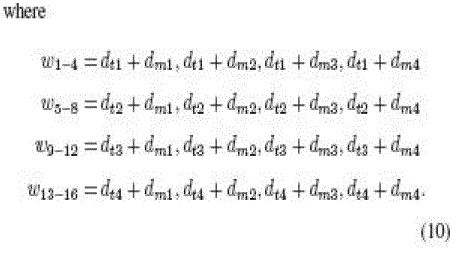 where
w₁₋₄ = dₜ₁ + dₘ₁, dₜ₁ + dₘ₂, dₜ₁ + dₘ₃, dₜ₁ + dₘ₄
w₅₋₈ = dₜ₂ + dₘ₁, dₜ₂ + dₘ₂, dₜ₂ + dₘ₃, dₜ₂ + dₘ₄
w₉₋₁₂ = dₜ₃ + dₘ₁, dₜ₃ + dₘ₂, dₜ₃ + dₘ₃, dₜ₃ + dₘ₄
w₁₃₋₁₆ = dₜ₄ + dₘ₁, dₜ₄ + dₘ₂, dₜ₄ + dₘ₃, dₜ₄ + dₘ₄.
(10)